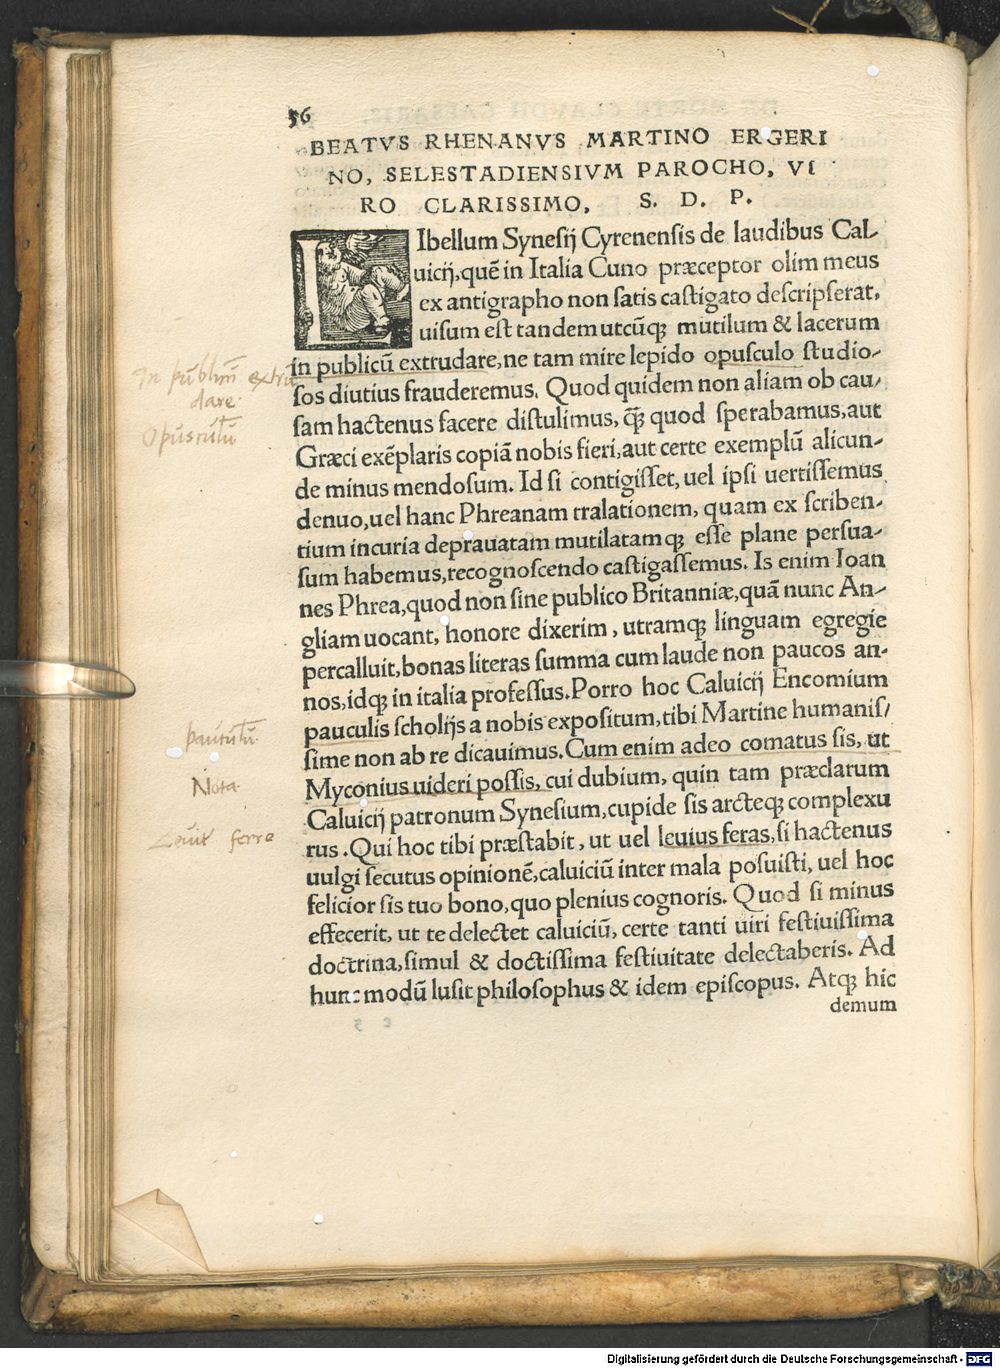 56
BEATVS RHENANVS MARTINO ERGERI
NO, SELESTADIENSIVM PAROCHO, VI
RO CLARISSIMO, S. D. P.
LIbellum Synesij Cyrenensis de laudibus Cal-
uicij, quē in Italia Cuno præceptor olim meus
ex antigrapho non satis castigato descripserat,
uisum est tandem utcūq; mutilum & lacerum
in publicū extrudare, ne tam mire lepido opusculo studio-
sos diutius frauderemus. Quod quidem non aliam ob cau-
sam hactenus facere distulimus, q̄ꝫ quod sperabamus, aut
Græci exēplaris copiā nobis fieri, aut certe exemplū alicun-
de minus mendosum. Id si contigisset, uel ipsi uertissemus
denuo, uel hanc Phreanam tralationem, quam ex scriben-
tium incuria deprauatam mutilatamq; esse plane persua-
sum habemus, recognoscendo castigassemus. Is enim Ioan
nes Phrea, quod non sine publico Britanniæ, quā nunc An-
gliam uocant, honore dixerim, utramq; linguam egregie
percalluit, bonas literas summa cum laude non paucos an-
nos, idq; in italia professus. Porro hoc Caluicij Encomium
pauculis scholijs a nobis expositum, tibi Martine humanis/
sime non ab re dicauimus. Cum enim adeo comatus sis, ut
Myconius uideri possis, cui dubium, quin tam præclarum
Caluicij patronum Synesium, cupide sis arcteq; complexu
rus. Qui hoc tibi præstabit, ut uel leuius feras, si hactenus
uulgi secutus opinionē, caluiciū inter mala posuisti, uel hoc
felicior sis tuo bono, quo plenius cognoris. Quod si minus
effecerit, ut te delectet caluiciū, certe tanti uiri festiuissima
doctrina, simul & doctissima festiuitate delectaberis. Ad
hunc modū lusit philosophus & idem episcopus. Atq; hic
demum
In publicū extru
dare.
Opusculū
pauculū
Nota
Leuit ferre
Digitalisierung gefördert durch die Deutsche Forschungsgemeinschaft - DFG